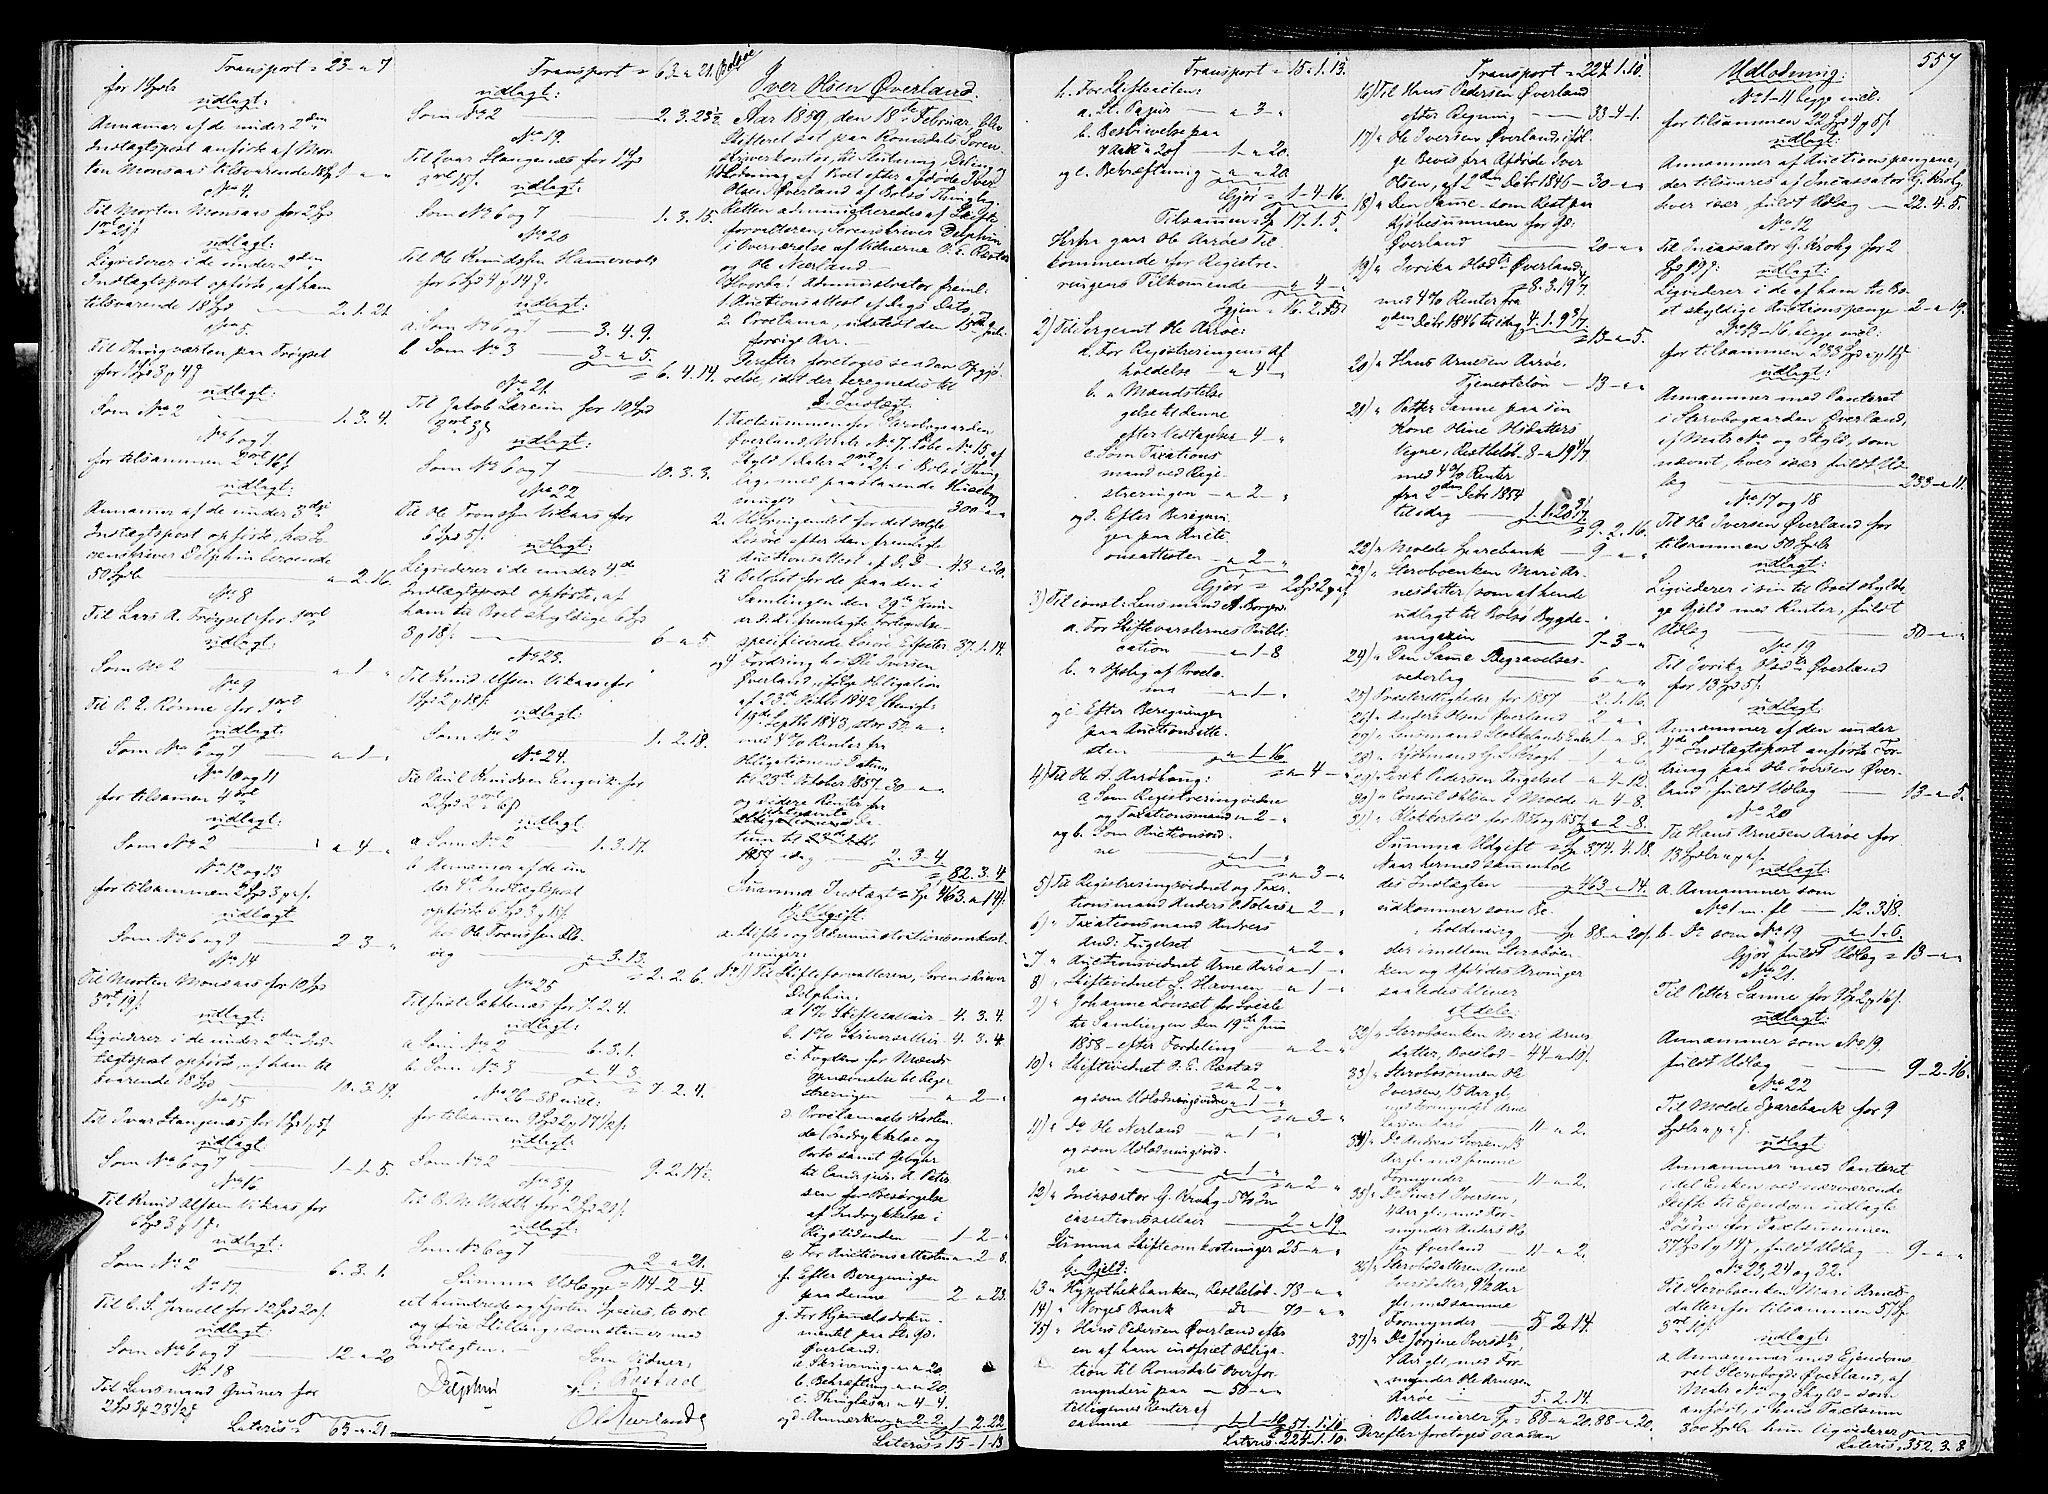 Transport = 23 - " 7
for 1 Spd
udlagt:
Annamer af de under 2den
Indtægtspost anførte af Mor-
ten Monsaas tilsvarende 18 Spd 1 - " - "
No 4.
Til Morten Monsaas for 2 Spd
udlagt:
Liqviderer i de under 2den
Indtægtspost opførte, af ham
tilsvarende 18 Spd - 2. 1. 21.
No 5.
for 1 Spd 3 # 4 ß
udlagt:
Som No 2 - 1. 3. 4.
No 6 og 7
for tilsammen 2 ort 16 ß
udlagt:
Annamer af de under 3die
Indtægtspost opførte, hos So-
renskriver Delphin beroende
50 Spd - " - 2. 16.
No 8
Til Lars A. Frøyset for 1 ort
udlagt:
Som No 2 - " 1 "
No 9
Til P. L. Rønne for 1 ort
udlagt:
Som No 6 og 7 - " - 1 - "
No 10 og 11
for tilsamen 4 ort
udlagt:
Som No 2 - " - 4 - "
No 12 og 13
for tilsammen 2 Spd 3 # " ß
udlagt
Som No 6 og 7 - 2 - 3 - "
No 14
Til Morten Monsaas for 10 Spd
3 ort 19 ß
udlagt:
Liqviderer i de under 2den Ind-
tægtspost opførte, af ham til-
svarende 18 Spd - 10. 3. 19.
No 15
Til Ivar Stangenæs for 1 Spd 1 # 5 ß
udlagt:
Som No 6 og 7 - 1 - 1 - 5.
No 16
Til Knud Alfsen Vikaas for
6 Spd 3 # 1 ß
udlagt:
Som No 2 - 6. 3. 1.
No 17.
Til C. S. Jervell for 12 Spd 20 ß
udlagt:
Som No 6 og 7 - 12 - " 20
No 18
Til Lensmand Grüner for
Lateris = 63 - " 21.
Transport = 63 - " 21.
udlagt:
Som No 2 - 2. 3. 23½
No 19.
Til Ivar Stangenæs for 1 Spd
3 ort 15 ß
udlagt:
Som No 6 og 7 - 1. 3. 15.
No 20
Til Ole Knudsen Hammervold
for 6 Spd 4 # 14 ß
udlagt:
a. Som No 6 og 7 - 3. 4. 9.
b. Som No 3 - 3 - " 5.
= 6. 4. 14.
No 21.
Til Jakob Læreim for 10 Spd
3 ort 3 ß
udlagt:
Som No 6 og 7 - 10. 3. 3.
No 22
Til Ole Tronssen Vikaas for
6 Spd 5 ß
udlagt:
Liqviderer i de under 4de
Indtægtspost opførte, af
ham til Boet skyldige 6 Spd
3 # 18 ß - 6 - " 5
No 23.
Til Knud Alfsen Vikaas for
1 Spd 2 # 18 ß
udlagt:
Som No 2 - 1. 2. 18.
No 24.
Til Paul Knudsen Engvik for
2 Spd 2 ort 6 ß
udlagt
a Som No 2 - 1. 3. 17.
b Annamer af de un
der 4de Indtægtspost
opførte 6 Spd 3 # 18 ß
hos Ole Tronssen El-
veg - " 3. 13
= 2. 2. 6.
No 25
Til Just Sækkenæs for 7. 2. 4.
udlagt:
a Som No 2 - 6. 3. 1.
b. Som No 3 - " 4. 3
= 7. 2. 4.
No 26-38 incl:
for tilsammen 9 Spd 2 # 17½ ß
udlagt:
Som No 2 - 9. 2. 17½
No 39.
Til B. M. Math for 2 Spd 21 ß
udlagt:
Som No 6 og 7 - 2 - " 21.
Summa Udlægge = 114 - 2 - 4.
eet hundrede og fjorten Species, to ort
og fire Skilling, som stemmer med
Indtægten.
Som Vidner:
Delphin
O. E. Røstad
Ole Neerland
Bolsøe
Iver Olsen Øverland.
Aar 1859, den 18de Februar blev
Skifteret sat paa Romsdals Soren-
skriverkontor, til Slutning, Deling og
Udlodning af Boet efter afdøde Iver
Olsen Øverland af Bolsø Thinglag.
Retten administreredes af Skifte-
forvalteren, Sorenskriver Delphin
i Overværelse af Vidnerne O. E. Røstad
og Ole Neerland.
Hvorda! Administrator freml:
1. Auctionsattest af Dags Dato,
2. Proclama, udstedt den 15de Juli
forrige Aar.
Derefter foretoges saadan Opgjø-
relse, idet der beregnedes til
A. Indtægt.
1. Taxtsummen for Sterbogaarden
Øverland, Matr. No 7, Løbe No 15, af
Skyld 1 Daler 2 ort 2 ß i Bolsø Thing-
lag, med paastaaende Husebyg-
ninger - 300 - " - "
2. Udbringendet for det solgte
Løsøre efter den fremlagte
Auctionsattest af D. D. - 43 - " 20.
3. Beløbet for de paa den i
Samlingen den 29de Juni
a: d: fremlagte Fortegnelse
specificerede Løsøre Effecter 37. 1. 14.
og 4 Fordring hos Ole Iversen
Øverland, ifølge Obligation
af 23de Octbr 1842, thinglæst
19de Septbr 1843, stor 50 - " - "
med 4 % Renter fra
Obligationens Datum
til 23de October 1857 30 - " - "
og videre Renter fra
sidstnævnte Da-
tum til
1857 idag - 2. 3. 4
= 82. 3. 4
Summa Indtægt = Sp 463. " 14 ß.
B. Udgift.
a. Skifte- og Administrationsomkost-
ninger.
No 1) Til Skifteforvalteren, Sorenskriver
Delphin:
a 1 % Skiftesallair - 4. 3. 4.
b. 1 % Skriversallair - 4. 3. 4.
c: Fogdens for Mænds
Opnævnelse til Regi-
streringen - " - 2 - "
d Proclamaets Kosten-
de, Indrykkelse og
Porto samt Gebyhr
til Cand. jur: A. Peter-
sen for Besørgelse
af Indrykkelse i
Rigstidenden - 1 - 2 - "
e. For Auctionsattesten " - 2 - 8.
f. Efter Beregningen
paa denne - 2 - " 23.
g. For Hjemmelsdoku-
mentet paa St: Gd.
Øverland:
a. Skrivning " - " 20
b. Bekræftning " - " 20.
c. Thinglæsn: " - 4 - 4.
og d. Anmærkn: " - 2 - 2. = 1 - 2. 22
Lateris 15 - 1 - 13
557
Transport = 15. 1. 13.
h. For Skifteriten:
a. St. Papir - " 3 - "
b. Beskrivelse paa
7 Ark a 20 ß - 1 - " 20.
og c. Bekræftning - " - " 20.
Gjør = 1 - 4 - 16.
Tilsammen 17. 1. 5.
Herfra gaar Ole Aarøes Til-
kommende for Registre-
ringens Tilkomende - " 4 - "
Igjen 16. 2. 5.
2) Til Sergeant Ole Aarøe:
a. For Registreringens Af-
holdelse - " 4 - "
b. " Mandstilsi-
gelse til denne
efter Vedtagelse - 4 - "
c. Som Taxations-
mand ved Regi-
streringen - " 2 - "
og d. Efter Beregnin-
gen paa Aucti-
onsattesten - " 2 - "
3) Til const: Lensmand A. Borge:
a. For Skiftevarslernes Publi-
cation - " 1 - 8
b. " Opslag af Procla-
ma - " - 1 - "
og c Efter Beregningen
paa Auctionsatte-
sten - " 1 - 16
= " - 4 - "
4) Til Ole A. Aarøbang:
a. Som Registreringsvidne
og Taxationsmand " - 2 - "
og b. Som Auctionsvid-
ne - " 1 - "
= " - 3 - "
5) Til Registreringsvidnet og Taxa-
tionsmand Anders O. Talset - " 2 - "
6) " Taxationsmand Anders
And: Fugelset - " - 2 - "
7 " Auctionsvidnet Arne Aarø - " 1 - "
8) " Skiftevidnet L. Havnen - " 1 - "
9) " Johanne Lonset for Lokale
til Samlingen den 19de Juni
1858 - efter Fordeling - " 2 - "
10) " Skiftevidnet O. E. Røstad
= " 2 - "
og som Udlodningsvidne " 1 - "
= " - 3 - "
11) " Do Ole Nerland - " 1 - "
og som Udlodningsvid-
ne - " 1 - "
= " - 2 - "
12) " Incassator G. Krohg 5 % In-
cassationssallair - 2 - " 19
Summa Skifteomkostninger 25 - " - "
b. Gjeld:
13 " Hypothekbanken, Restbeløb - 78 - " - "
14) " Norges Bank do - 70 - " - "
15) " Hans Pedersen Øverland efter
en af ham indfriet Obliga-
tion til Romsdals Overfor-
mynderi paa - 50 - " - "
tilligemed Renter af
samme - 1 - 1 - 10 = 51. 1. 10.
Lateris = 224. 1. 10.
Transport = 224. 1. 10.
16) Til Hans Pedersen Øverland
efter Regning - 33 - 4 - 1.
17) " Ole Iversen Øverland, iføl-
ge Bevis fra Afdøde Iver
Olsen, af 2den Octbr 1846 - 30 - " - "
18) " Den Samme - som Rest paa
Kjøbesummen for Gd.
Øverland - 20 - " - "
19) " Ivrika Olsdtr Øverland,
med 4 % Renter fra
2den Octbr 1846 til idag
= 13 - " 5.
20) " Hans Arnesen Aarøe,
Tjenesteløn - 13 - " - "
21) " Petter Sanne paa sin
Kone Oline Olsdatters
Vegne, Restbeløb
med 4 % Renter
fra 2den Octbr 1854
til idag
= 9 - 2. 16.
22) " Molde Sparebank - 9 - " - "
23) " Sterboenken Mari Ar-
nesdatter, som af hende
udlagt til Bolsø Bygde-
magazin - 7 - 3 - "
24) " Den Samme Begravelses-
vederlag - 6 - " - "
25) " Præsterettigheder for 1857 2. 1. 16.
26) " Anders Olsen Øverland 2 - " - "
27) " Lensmand Stokkelands Enke 1 - " 8.
28) " Kjøbmand G. L. Krogh " 1 - 6.
29) " Erik Pedersen Fugelset - " 4 - 12.
30) " Consul Ohlsen i Molde - " 4 - 8.
31) " Klokkertold for 1856 og 1857 - " - 2 - 8.
Summa Udgift = Sp 374. 4. 18.
Naar hermed sammenhol-
des Indtægten - 463 - " 14.
udkommer som Be-
holdning Sp 88 - " 20 ß.
der imellem Sterboen-
ken og Afdødes Arvinger
saaledes bliver
at dele:
32) " Sterboenken Mari Arnes-
datter, Boeslod - 44 - " 10 ß.
33) " Sterbosønnen Ole
Iversen, 15 Aar gl.
med Formynder Arne
Larsen Aarø - 11 - " 2.
34) " Do Andreas Iversen, 13
Aar gl. med samme
Formynder - 11 - " 2.
35) " Do Sivert Iversen,
4 Aar gl., med For-
mynder Anders Ol-
sen Øverland - 11 - " 2.
36) " Sterbodatteren Anne
Iversdatter, 9½ Aar
gl., med samme
Formynder - 5 - 2. 14.
37) " Do Jørgine Iversdtr,
7 Aar gl., med For-
mynder Ole Arnesen
Aarøe - 5. 2. 14.
Ballancerer Sp = 88 - " 20. 88 - " 20.
Derefter foretoges saadan
Udlodning:
No 1-11 begge incl:
for tilsammen 22 Spd 4 # 5 ß.
udlagt:
Annamer af Auctionspengene,
der tilsvares af Incassator G. Krohg
hver især fuldt Udlæg - 22. 4. 5.
No 12
Til Incassator G. Krohg for 2
Spd 19 ß: udlagt:
Liqviderer i de af ham til Bo-
et skyldige Auctionspenge - 2 - " 19.
No 13-16 begge incl:
for tilsammen 233 Spd " # 11 ß
udlagt:
Annammer med Panteret
i Sterbogaarden Øverland,
af Matr. No og Skyld, som
nævnt, hver især fuldt Ud-
læg - 233 - " 11.
No 17 og 18
Til Ole Iversen Øverland for
tilsammen 50 Spdlr
udlagt:
Liqviderer i sin til Boet skyldi-
ge Gjeld med Renter, fuldt
Udlæg - 50 - " - "
No 19
Til Ivrika Olsdtr Øverland
for 13 Spd 5 ß.
udlagt:
Annammer af den under
4de Indtægtspost anførte For-
dring paa Ole Iversen Øver-
land, fuldt Udlæg - 13 - " 5.
No 20
Til Hans Arnesen Aarøe for
13 Spdlr " # " ß.
udlagt:
a. Annammer som
No 1 m. fl. - 12. 3. 18.
b. Do som No 19 - " 1 - 6.
Gjør fuldt Udlæg = 13 - " - "
No 21.
Til Petter Sanne for 9 Sp 2 # 16 ß.
udlagt:
Annammer som No 19.
fuldt Udlæg - 9 - 2 - 16.
No 22
Til Molde Sparebank for 9
Spdlr " # " ß.
udlagt:
Annammer med Panteret
i det Enken ved nærværende
Skifte til Eiendom indlagte
Løsøre for Taxtsummen
37 Spd 1 # 14 ß, fuldt Udlæg - 9 - " - "
No 23, 24 og 32.
Til Sterboenken Mari Arnes-
datter for tilsammen 57 Sp
3 ort 10 ß. udlagt:
a. Annammer med Eiendoms-
ret Sterbogd: Øverland,
Matr. No og Skyld - som
anført, i hvis Taxtsum
300 Spdlr hun liqviderer
Lateris, 352. 3. 8.